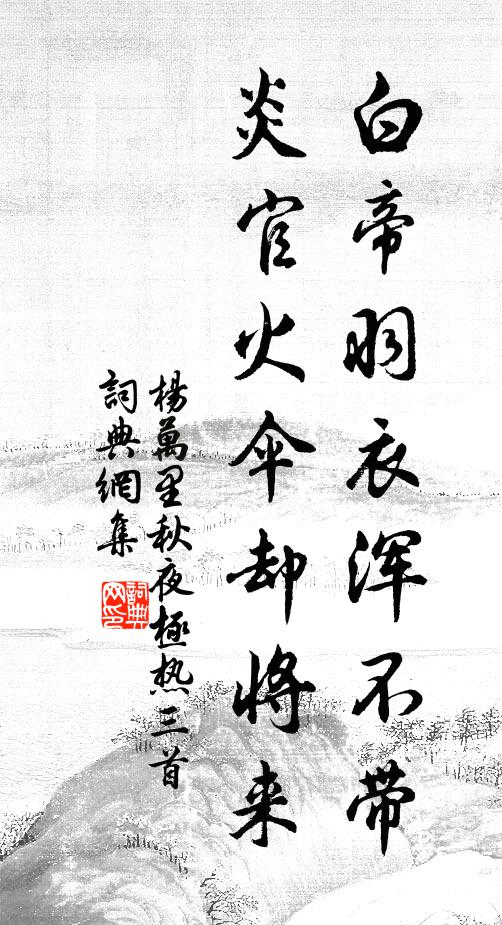 白帝羽衣浑不带
炎官火伞却将来
楊萬里秋夜極热三首
詞典網集
詞典
网印